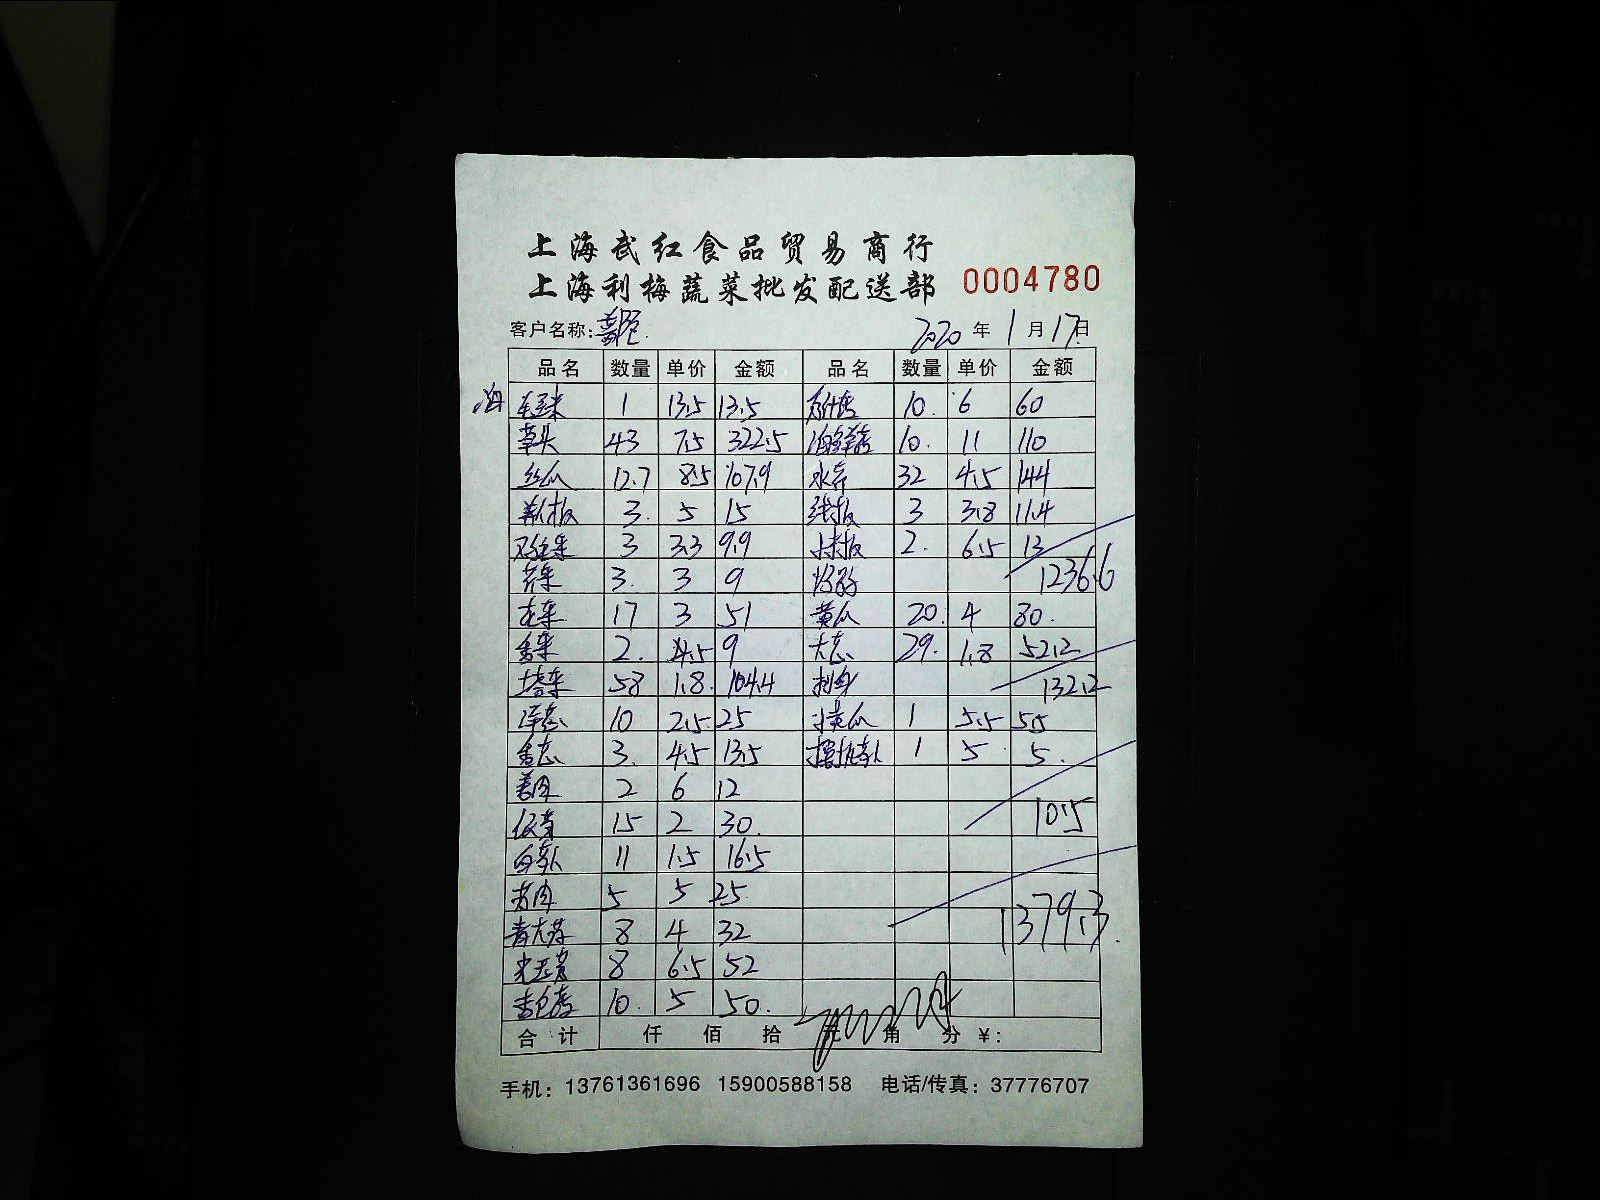 上海武红食品贸易商行
上海利梅蔬菜批发配送部 0004780
客户名称: 2020年1月17日
品名 数量 单价 金额 品名 数量 单价 金额
海 毛玉米 1 13.5 13.5 10. 6 60
草头 43 7.5 322.5 海鲜菇 10. 11 110
丝瓜 12.7 8.5 107.9 水芹 32 4.5 144
3. 5 15 线椒 3 3.8 11.4
3 3.3 9.9 2. 6.5 13
芹菜 3. 3 9 1236.6
花菜 17 3 51 黄瓜 20. 4 80.
香菜 2. 4.5 9 大葱 29. 1.8 52.2
塔菜 58 1.8. 104.4 刺身 132.2
洋葱 10 2.5 25 小黄瓜 1 5.5 5.5
香葱 3. 4.5 13.5 1 5 5.
姜肉 2 6 12
15 2 30. 10.5
11 1.5 16.5
5 5 25
青大蒜 8 4 32 1379.3.
8 6.5 52
10. 5 50.
合计 仟 佰 拾 元 角 分 ¥:
手机: 13761361696 15900588158 电话/传真: 37776707